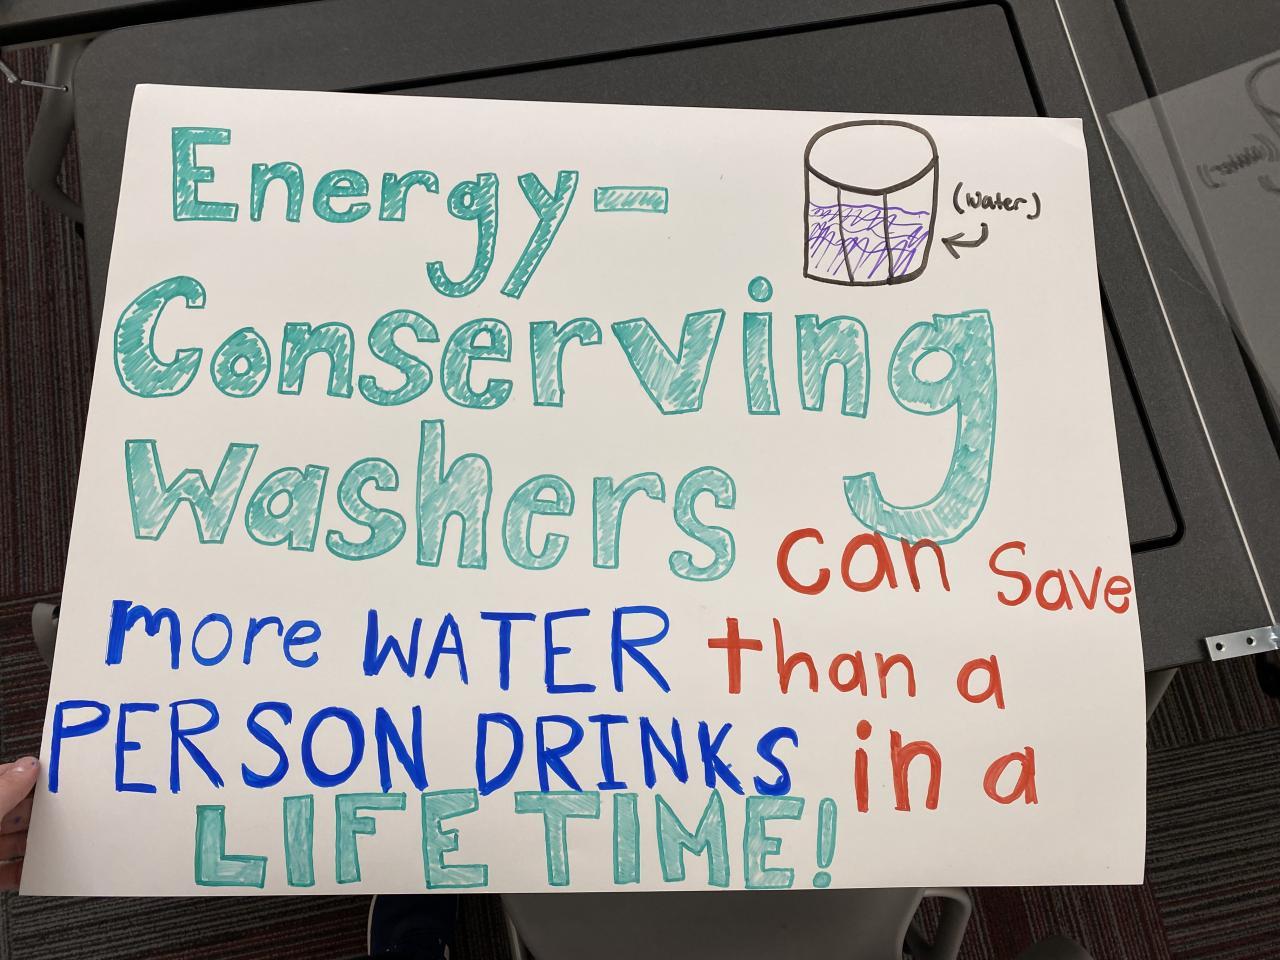 Energy-
(water)
Conserving
Washers can save
more WATER than a
PERSON DRINKS in a
LIFETIME!